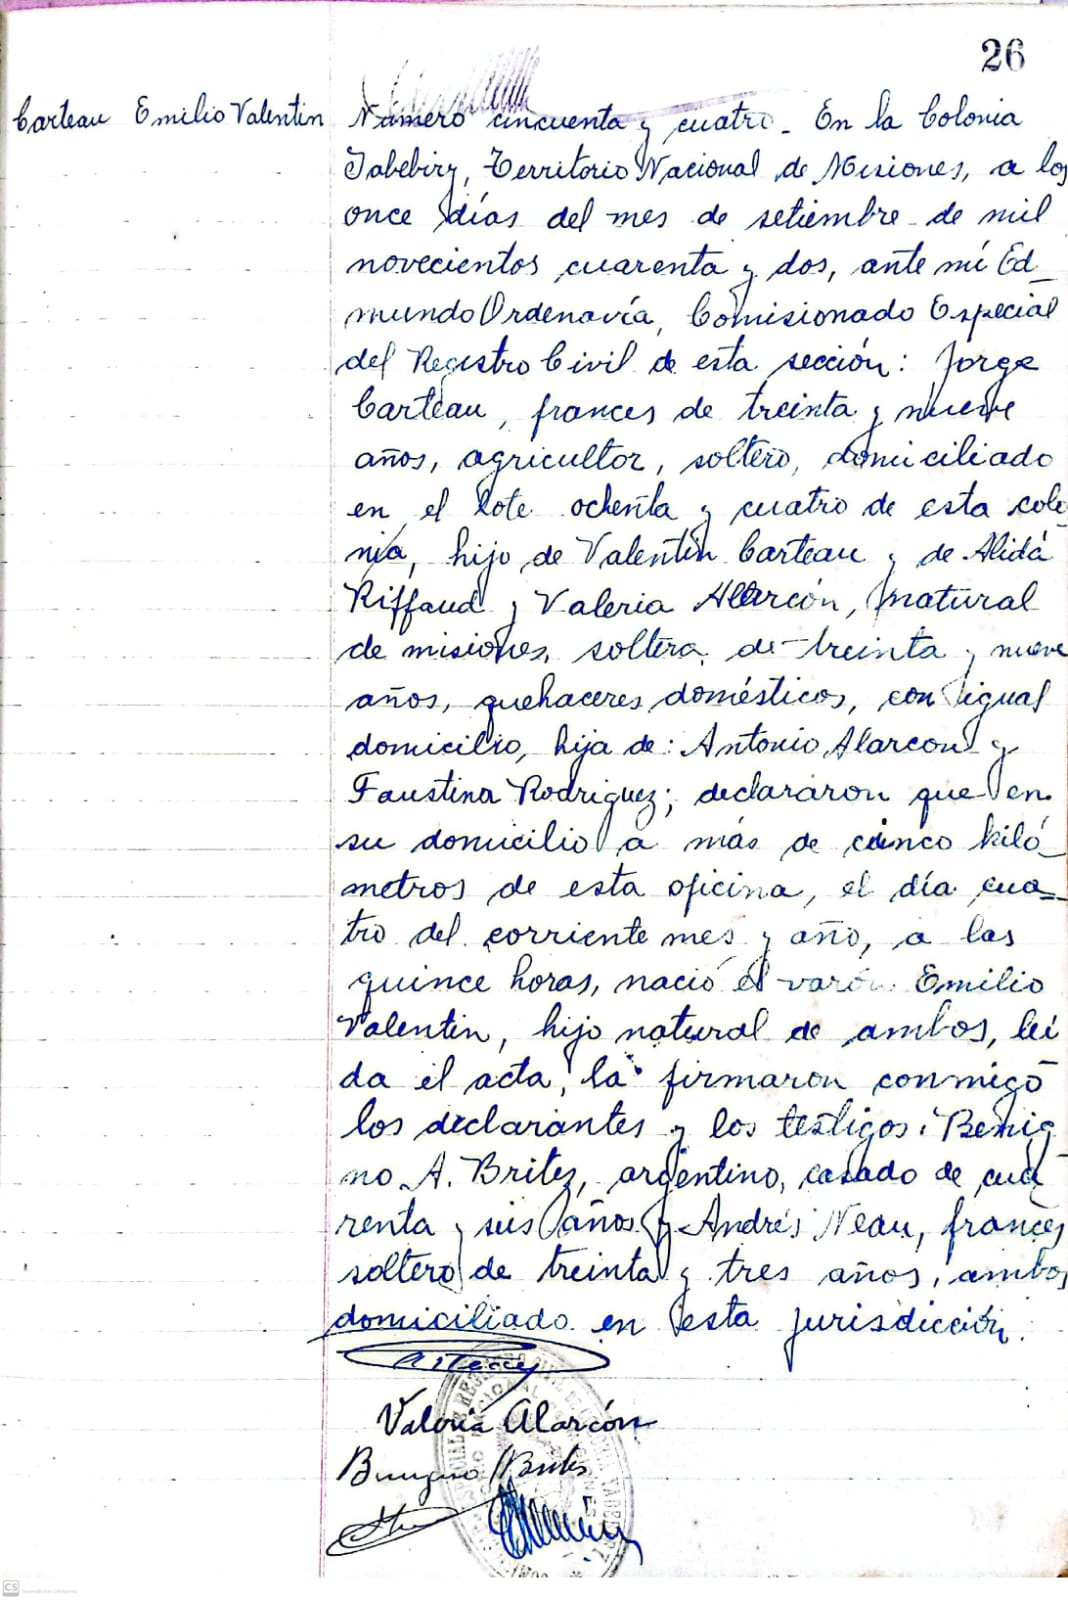 26
Carteau Emilio Valentin
Número cincuenta y cuatro. En la Colonia
Tabebiry, Territorio Nacional de Misiones, a los
once días del mes de setiembre de mil
novecientos cuarenta y dos, ante mí Ed
mundo Ordenavía, Comisionado Especial
del Registro Civil de esta sección: Jorge
Carteau, frances de treinta y nueve
años, agricultor, soltero, domiciliado
en el lote ochenta y cuatro de esta colo
nia, hijo de Valentin Carteau y de Alidá
Riffaud y Valeria Alarcón, natural
de misiones, soltera de treinta y nueve
años, quehaceres domésticos, con igual
domicilio, hija de: Antonio Alarcon y
Faustina Rodriguez; declararon que en
su domicilio a más de cinco kiló_
metros de esta oficina, el día cua_
tro del corriente mes y año, a las
quince horas, nació el varón Emilio
Valentin, hijo natural de ambos, leí
da el acta, la firmaron conmigo
los declarantes y los testigos: Benig
no A. Britez, argentino, casado de cua
renta y seis años y Andrés Neau, frances
soltero de treinta y tres años, ambos
domiciliado en esta jurisdicción.
Valeria Alarcón
Benigno Brites
CS